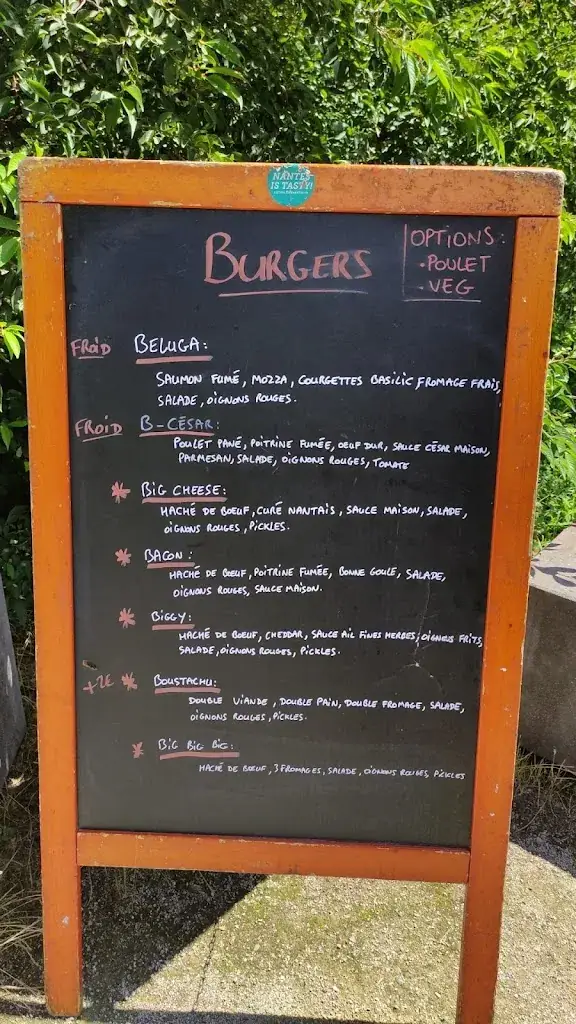 NANTES
IS TASTY!
BURGERS
OPTIONS:
• POULET
• VEG
FROID BELUGA:
SAUMON FUMÉ, MOZZA, COURGETTES BASILIC FROMAGE FRAIS,
SALADE, OIGNONS ROUGES.
FROID B-CÉSAR:
POULET PANÉ, POITRINE FUMÉE, OEUF DUR, SAUCE CÉSAR MAISON,
PARMESAN, SALADE, OIGNONS ROUGES, TOMATE
* BIG CHEESE:
HACHÉ DE BOEUF, CURÉ NANTAIS, SAUCE MAISON, SALADE,
OIGNONS ROUGES, PICKLES.
* BACON:
HACHÉ DE BOEUF, POITRINE FUMÉE, BONNE GOULE, SALADE,
OIGNONS ROUGES, SAUCE MAISON.
* BIGGY:
HACHÉ DE BOEUF, CHEDDAR, SAUCE AIL FINES HERBES, OIGNONS FRITS,
SALADE, OIGNONS ROUGES, PICKLES.
+2€ * BOUSTACHU:
DOUBLE VIANDE, DOUBLE PAIN, DOUBLE FROMAGE, SALADE,
OIGNONS ROUGES, PICKLES.
* BIG BIG BIG:
HACHÉ DE BOEUF, 3 FROMAGES, SALADE, OIGNONS ROUGES, PICKLES